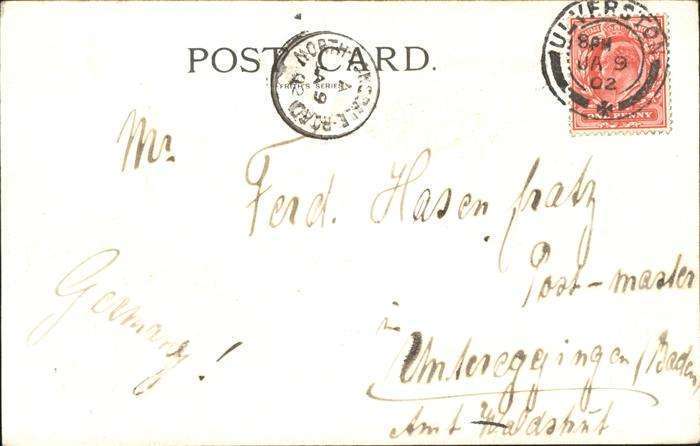 POST CARD.
FRITH'S SERIES
NORTH LONSDALE ROAD
A
JA 9
02
ULVERSTON
8PM
JA 9
02
*
ONE PENNY
Mr.
Ferd. Hasenfratz
Post-master
in
Untereggingen/Baden
Amt Waldshut
Germany!